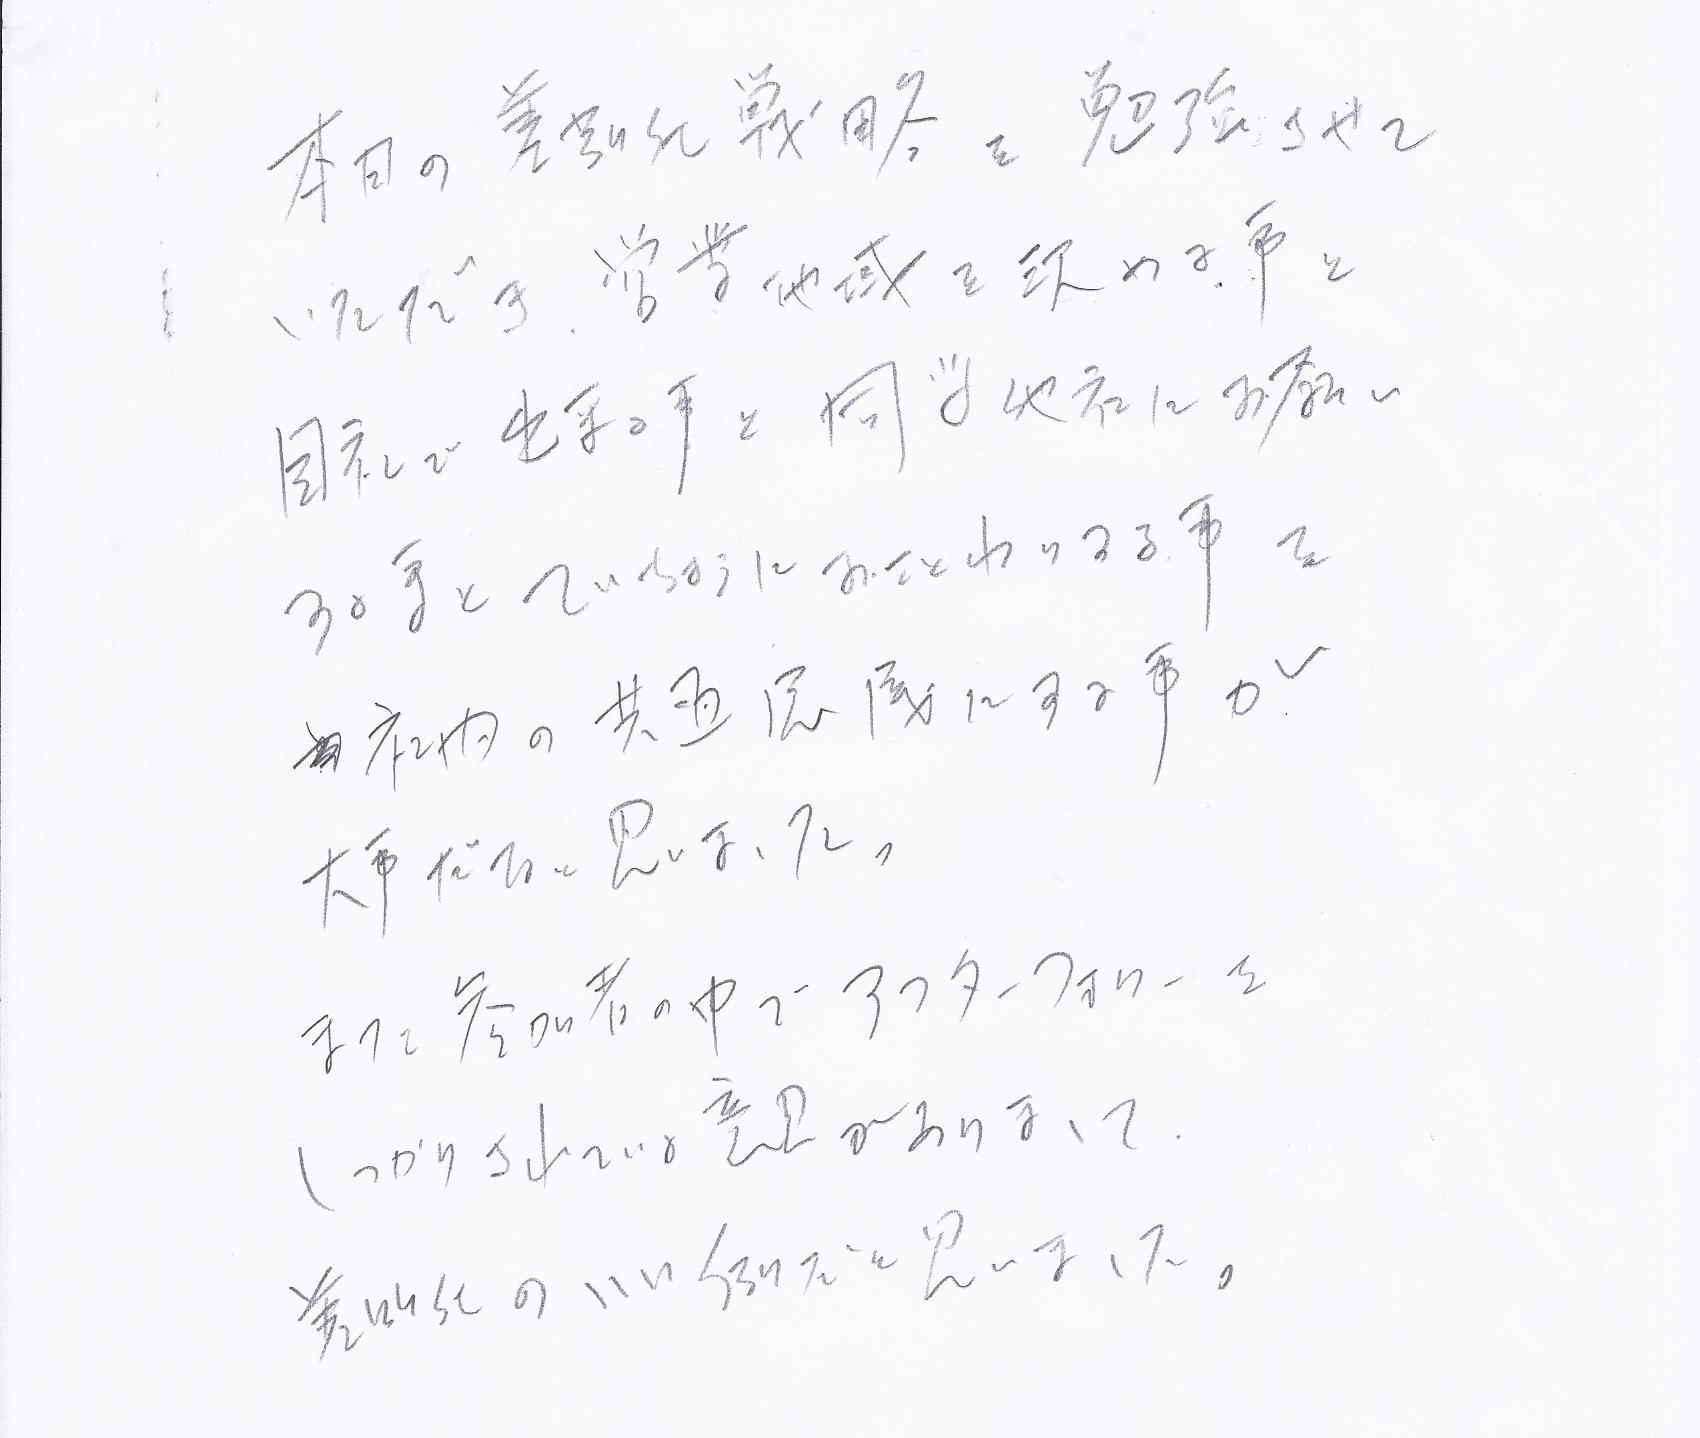 本日の差別化戦略を勉強させて
いただき、営業地域を決める事と
自社で出来る事と同業他社にお願い
する事とていちょうにおことわりする事を
社内の共通認識にする事が
大事だなと思いました。
また参加者の中でアフターフォローを
しっかりされている意見がありまして、
差別化のいい例だと思いました。